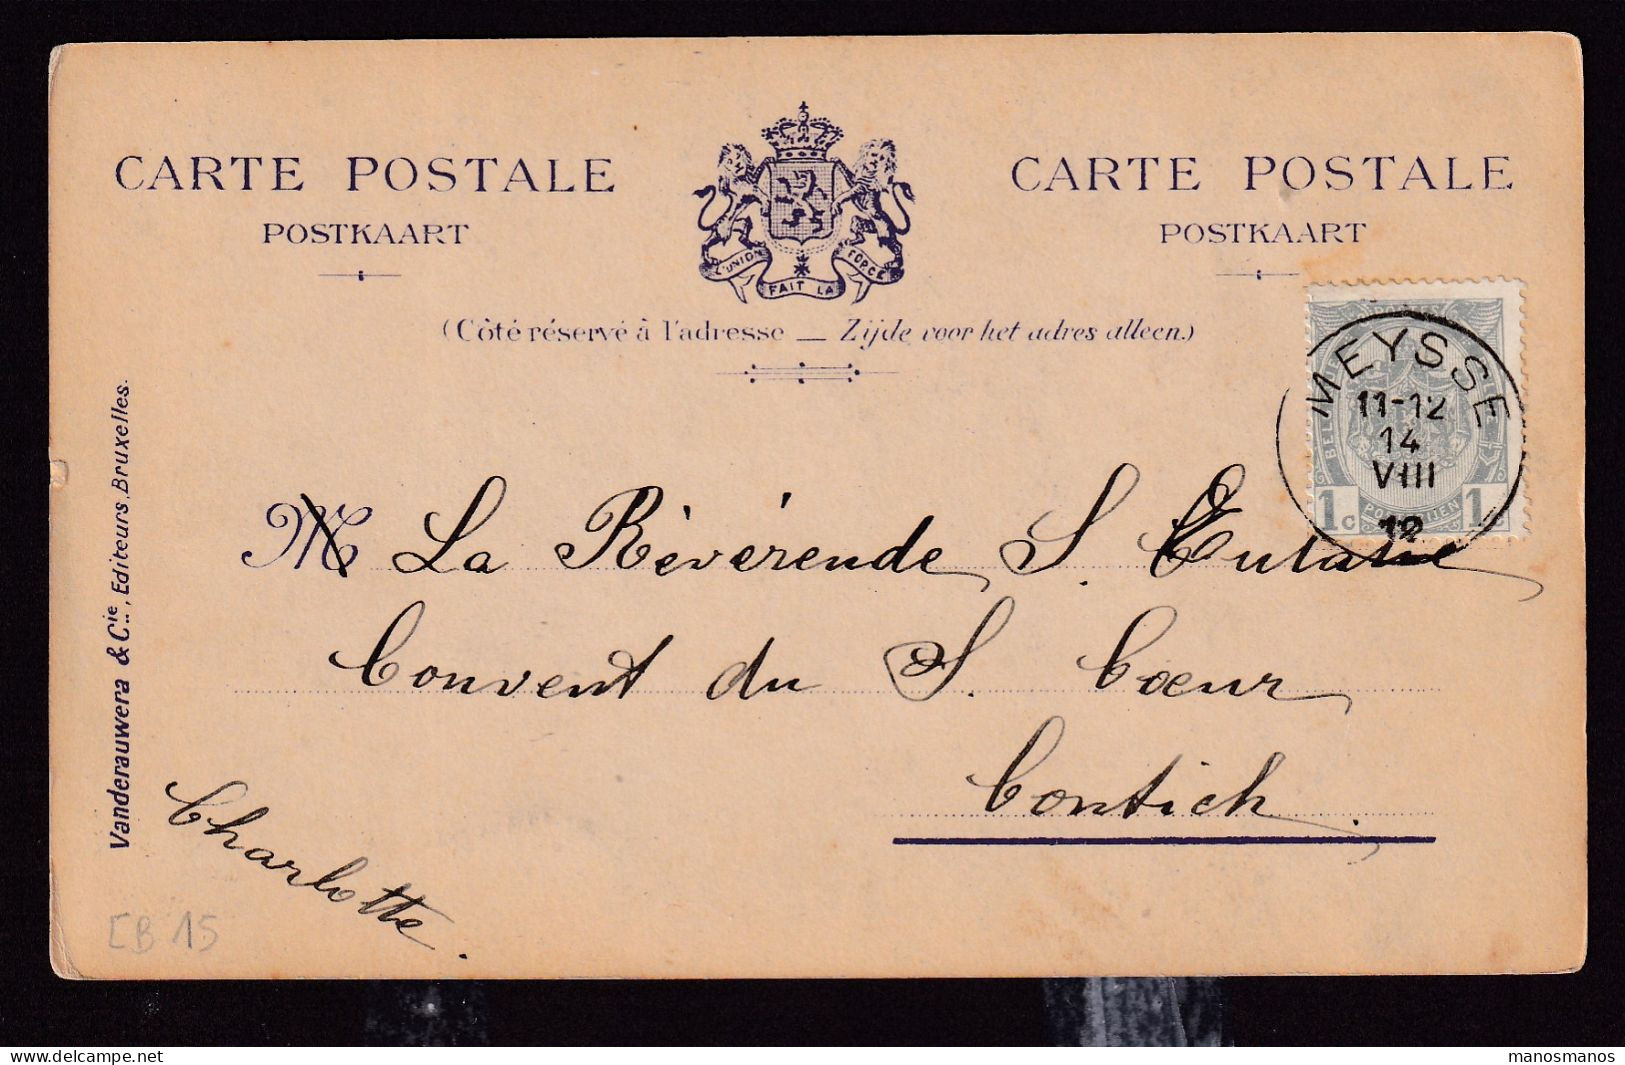 CARTE POSTALE
POSTKAART
CARTE POSTALE
POSTKAART
L'UNION FAIT LA FORCE
(Côté réservé à l'adresse — Zijde voor het adres alleen.)
MEYSSE
11-12
14
VIII
12
1c 1c
M La Révérende S. Eulalie
Convent du S. Cœur
Contich.
Charlotte.
Vanderauwera & Cie., Editeurs, Bruxelles.
CB 15
delcampe.net
manosmanos